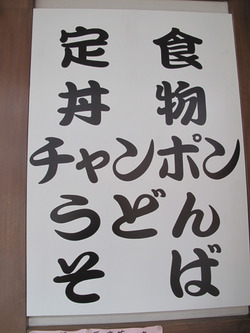 定食
丼物
チャンポン
うどん
そば